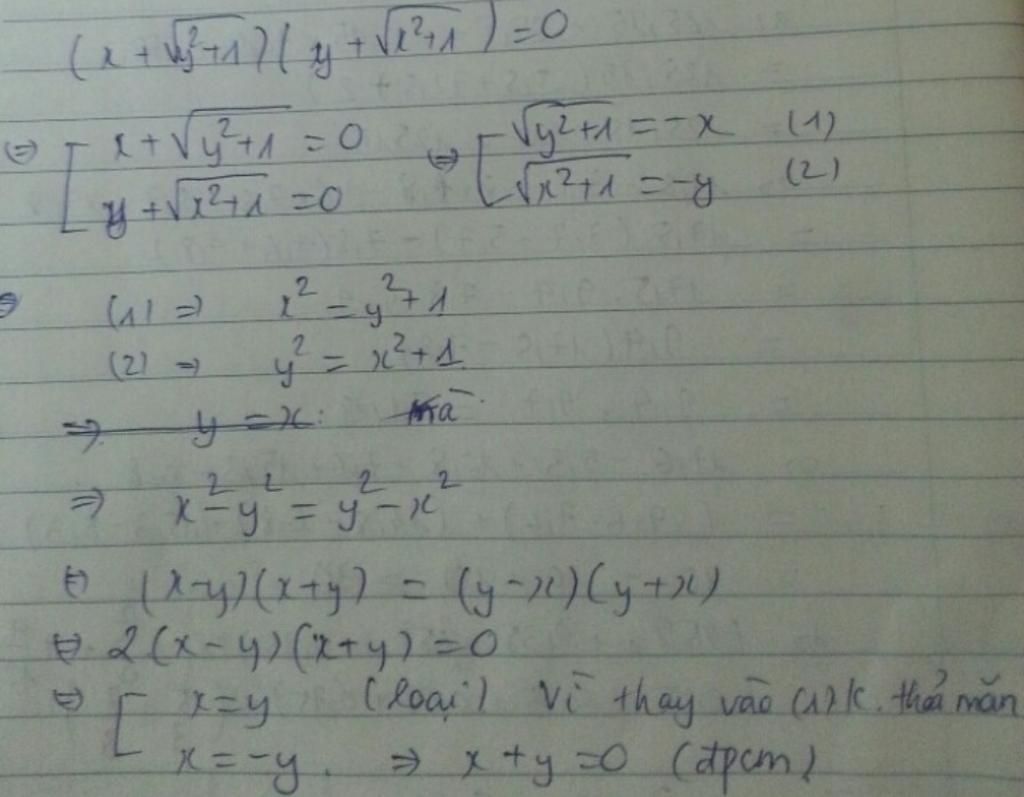 (x + √(y²+1))(y + √(x²+1)) = 0
⇔ [ x + √(y²+1) = 0 ⇔ [ √(y²+1) = -x (1)
y + √(x²+1) = 0 √(x²+1) = -y (2)
⇒ (1) ⇒ x² = y² + 1
(2) ⇒ y² = x² + 1
⇒ y = x: mà
⇒ x² - y² = y² - x²
⇔ (x-y)(x+y) = (y-x)(y+x)
⇔ 2(x-y)(x+y) = 0
⇔ [ x = y (loại) Vì thay vào (1) k. thỏa mãn
x = -y. ⇒ x + y = 0 (đpcm)